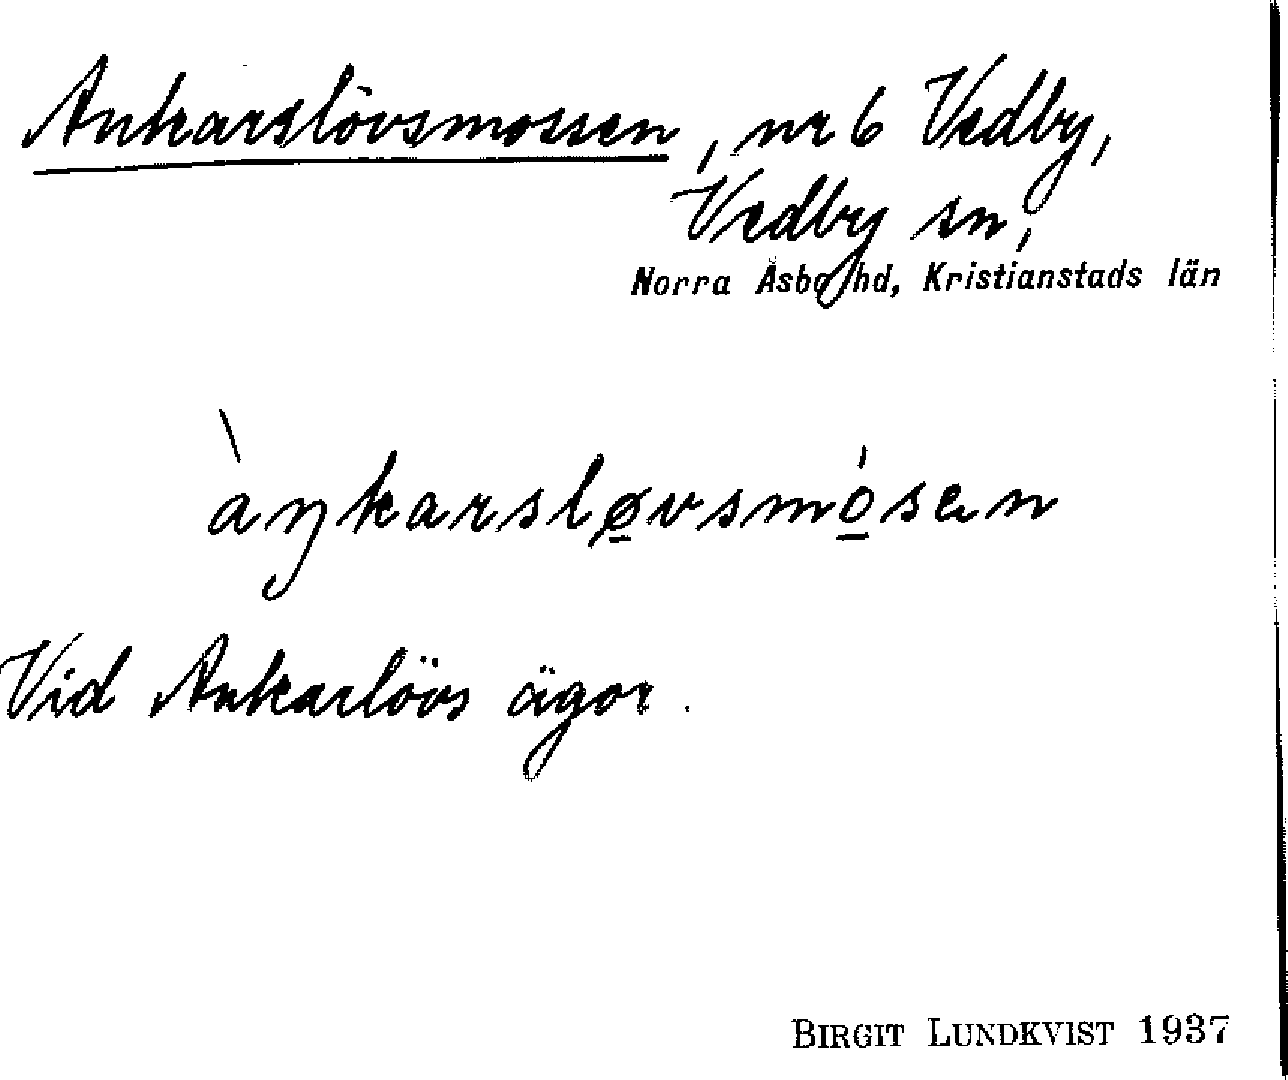 Ankarslövsmossen, nr 6 Vedby,
Vedby sn,
Norra Åsbo hd, Kristianstads län
àŋkarslø̱vsmó̱sen
Vid Ankarlövs ägor.
BIRGIT LUNDKVIST 1937